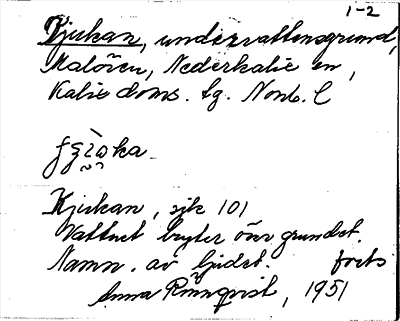 1-2
Kjirkan, undervattensgrund,
Malören, Nederkalix sn,
Kalix doms. tg. Norrb. l
Kjirkan, sjk 101
Vattnet bryter över grundet.
Namn. av ljudet. forts
Anna Rönnqvist, 1951